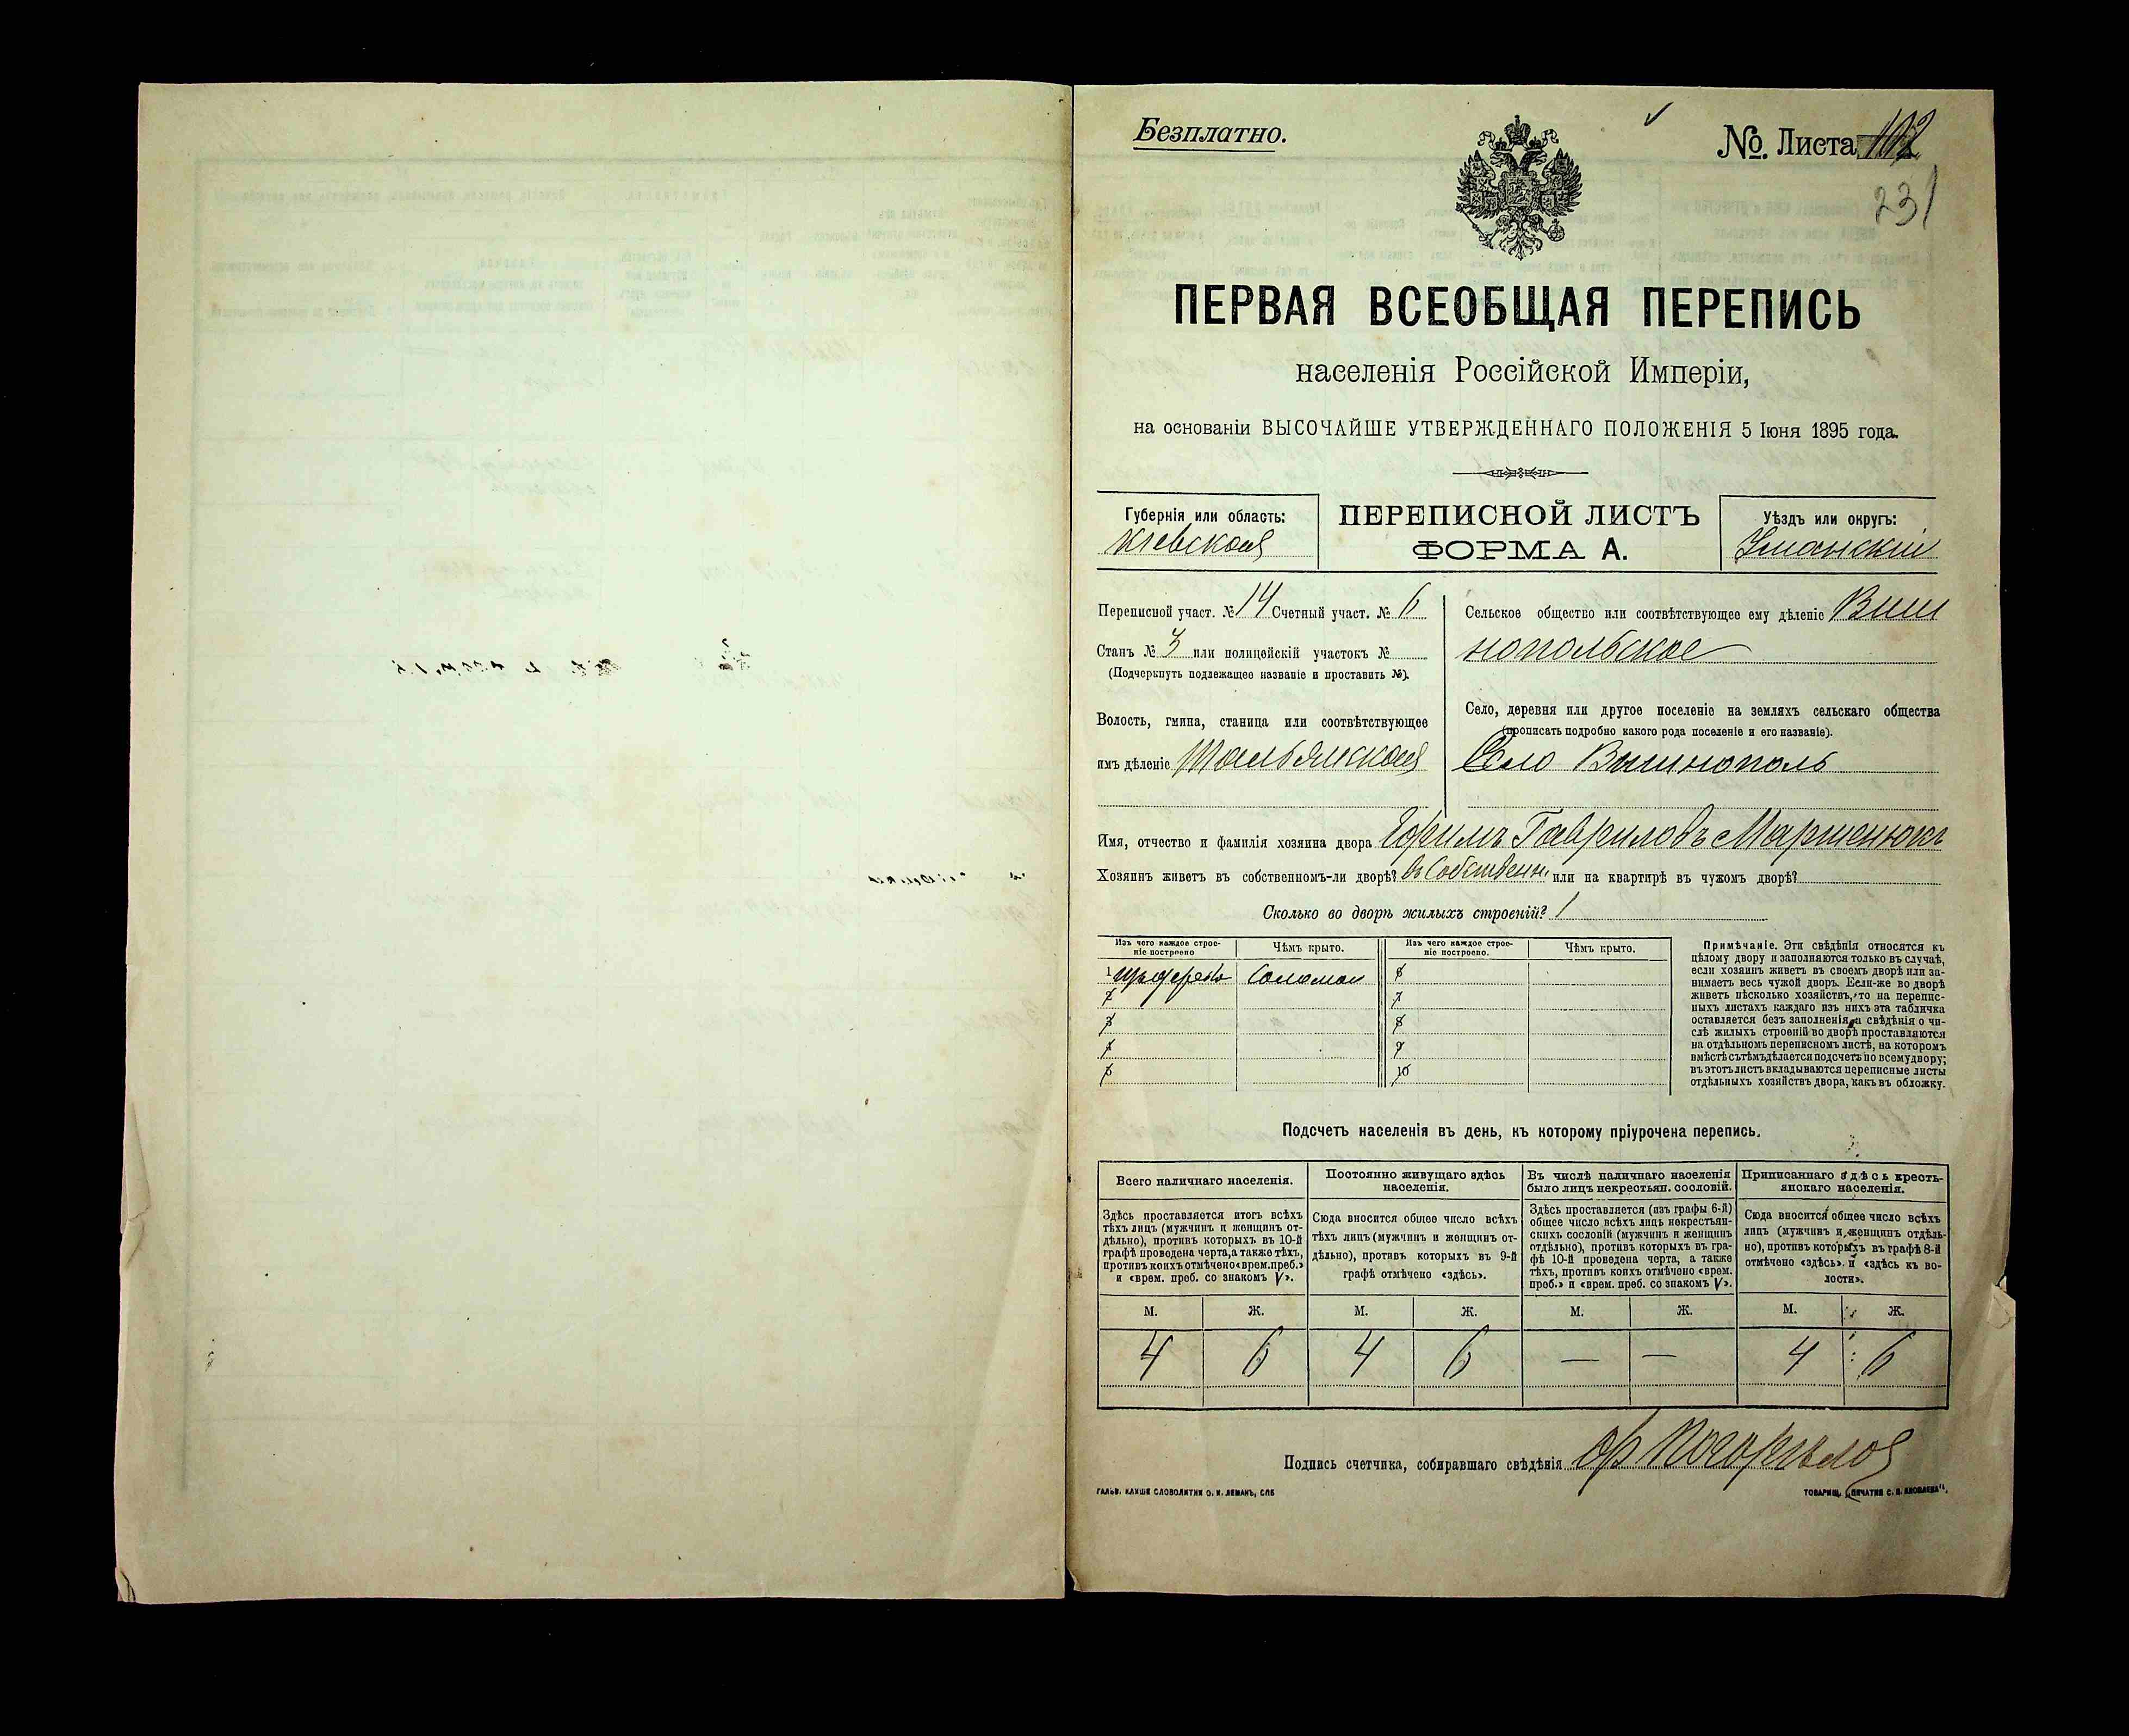 Безплатно.
№. Листа 102
231
ПЕРВАЯ ВСЕОБЩАЯ ПЕРЕПИСЬ
населенія Россійской Имперіи,
на основаніи ВЫСОЧАЙШЕ УТВЕРЖДЕННАГО ПОЛОЖЕНІЯ 5 Іюня 1895 года.
Губернія или область:
Кіевская
ПЕРЕПИСНОЙ ЛИСТЪ
ФОРМА А.
Уѣздъ или округъ:
Уманскій
Переписной участ. № 14 Счетный участ. № 6
Станъ № 3 или полицейскій участокъ №
(Подчеркнуть подлежащее названіе и проставить №).
Волость, гмина, станица или соотвѣтствующее
имъ дѣленіе Тальянская
Сельское общество или соотвѣтствующее ему дѣленіе Виш
нопольское
Село, деревня или другое поселеніе на земляхъ сельскаго общества
(прописать подробно какого рода поселеніе и его названіе).
Село Вишнополь
Имя, отчество и фамилія хозяина двора Ефимъ Гавриловъ Марценюкъ
Хозяинъ живетъ въ собственномъ-ли дворѣ? въ собственн. или на квартирѣ въ чужомъ дворѣ?
Сколько во дворѣ жилыхъ строеній? 1
Изъ чего каждое строе-
ніе построено
Чѣмъ крыто.
Изъ чего каждое строе-
ніе построено.
Чѣмъ крыто.
1 изъ дерева Соломой 6
7
3 8
9
10
Примѣчаніе. Эти свѣдѣнія относятся къ
цѣлому двору и заполняются только въ случаѣ,
если хозяинъ живетъ въ своемъ дворѣ или за-
нимаетъ весь чужой дворъ. Если-же во дворѣ
живетъ нѣсколько хозяйствъ, то на перепис-
ныхъ листахъ каждаго изъ нихъ эта табличка
оставляется безъ заполненія, а свѣдѣнія о чи-
слѣ жилыхъ строеній во дворѣ проставляются
на отдѣльномъ переписномъ листѣ, на которомъ
вмѣстѣ съ тѣмъ дѣлается подсчетъ по всему двору;
въ этотъ листъ вкладываются переписные листы
отдѣльныхъ хозяйствъ двора, какъ въ обложку.
Подсчетъ населенія въ день, къ которому пріурочена перепись.
Всего наличнаго населенія.
Здѣсь проставляется итогъ всѣхъ
тѣхъ лицъ (мужчинъ и женщинъ от-
дѣльно), противъ которыхъ въ 10-й
графѣ проведена черта, а также тѣхъ,
противъ коихъ отмѣчено «врем. преб.»
и «врем. преб. со знакомъ V».
Постоянно живущаго здѣсь
населенія.
Сюда вносится общее число всѣхъ
тѣхъ лицъ (мужчинъ и женщинъ от-
дѣльно), противъ которыхъ въ 9-й
графѣ отмѣчено «здѣсь».
Въ числѣ наличнаго населенія
было лицъ некрестьян. сословій.
Здѣсь проставляется (изъ графы 6-й)
общее число всѣхъ лицъ некрестьян-
скихъ сословій (мужчинъ и женщинъ
отдѣльно), противъ которыхъ въ гра-
фѣ 10-й проведена черта, а также
тѣхъ, противъ коихъ отмѣчено «врем.
преб.» и «врем. преб. со знакомъ V».
Приписаннаго здѣсь кресть-
янскаго населенія.
Сюда вносится общее число всѣхъ
лицъ (мужчинъ и женщинъ отдѣль-
но), противъ которыхъ въ графѣ 8-й
отмѣчено «здѣсь» и «здѣсь къ во-
лости».
М. Ж. М. Ж. М. Ж. М. Ж.
4 6 4 6 — — 4 6
Подпись счетчика, собиравшаго свѣдѣнія
ГАЛЬВ. КЛИШЕ СЛОВОЛИТНИ О. И. ЛЕМАНЪ, СПБ
ТОВАРИЩ. „ПЕЧАТНЯ С. П. ЯКОВЛЕВА“.